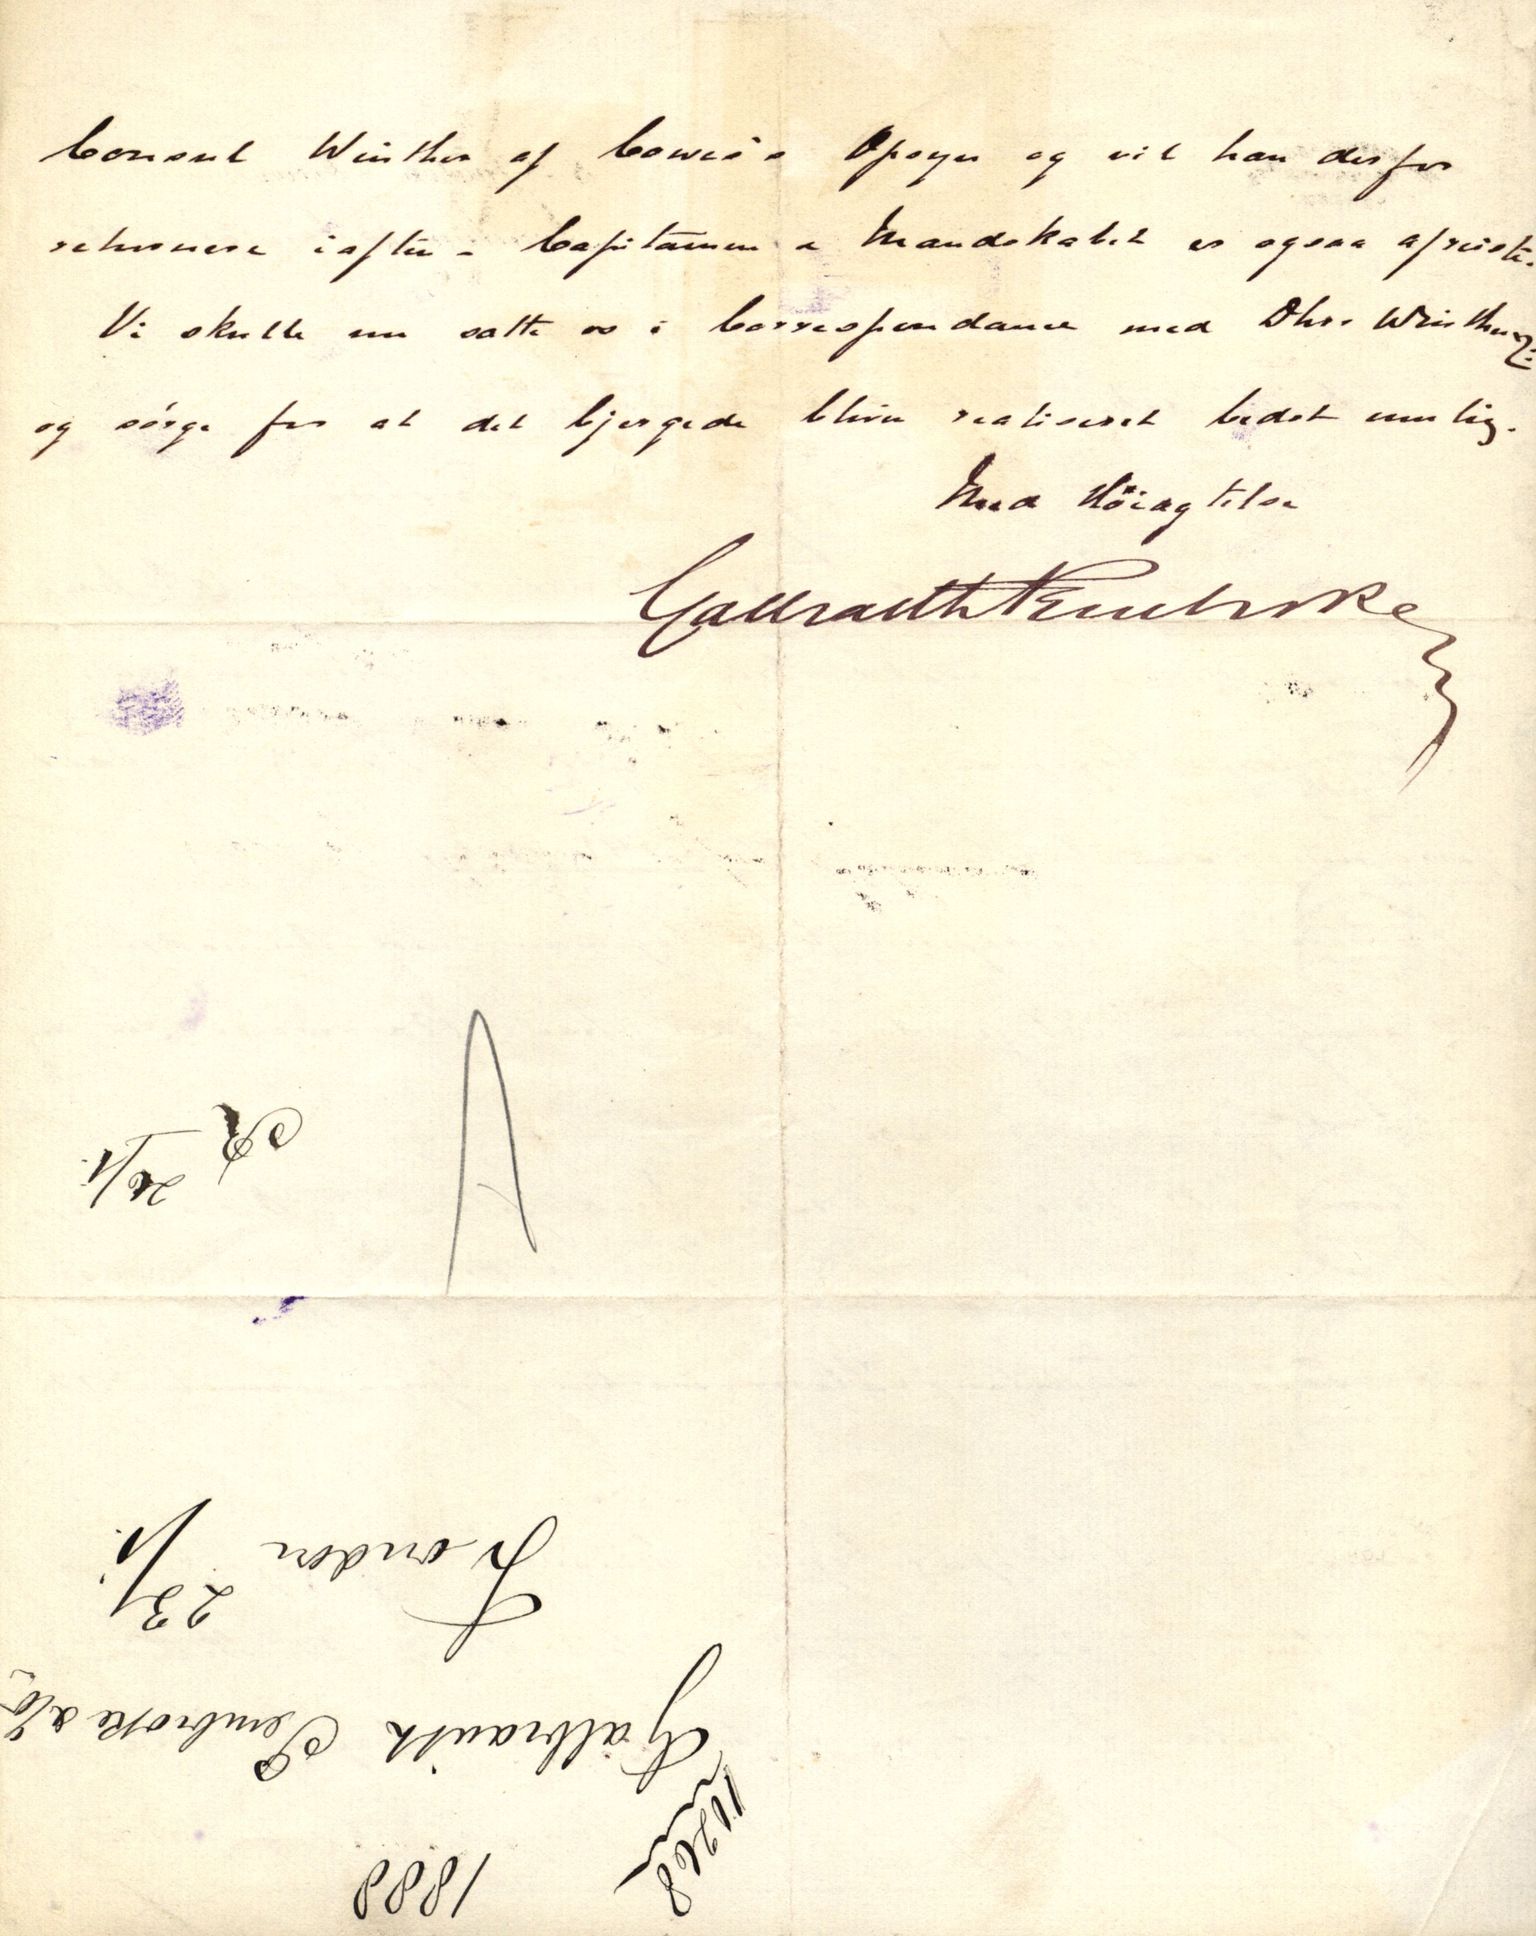 Consul Winther af Cowes's Opsyn og vil han derfor
returnere iaften - Capitainen & Mandskabet er ogsaa afreiste.
Vi skulle nu sætte os i Correspondance med Dhrr Winther
og sörge for at det bjergede bliver realiseret bedst mulig.
Med Höiagtelse
Galbraith Pembroke
A
26/1.
1888
Galbraith Pembroke & Co
London
23/1.